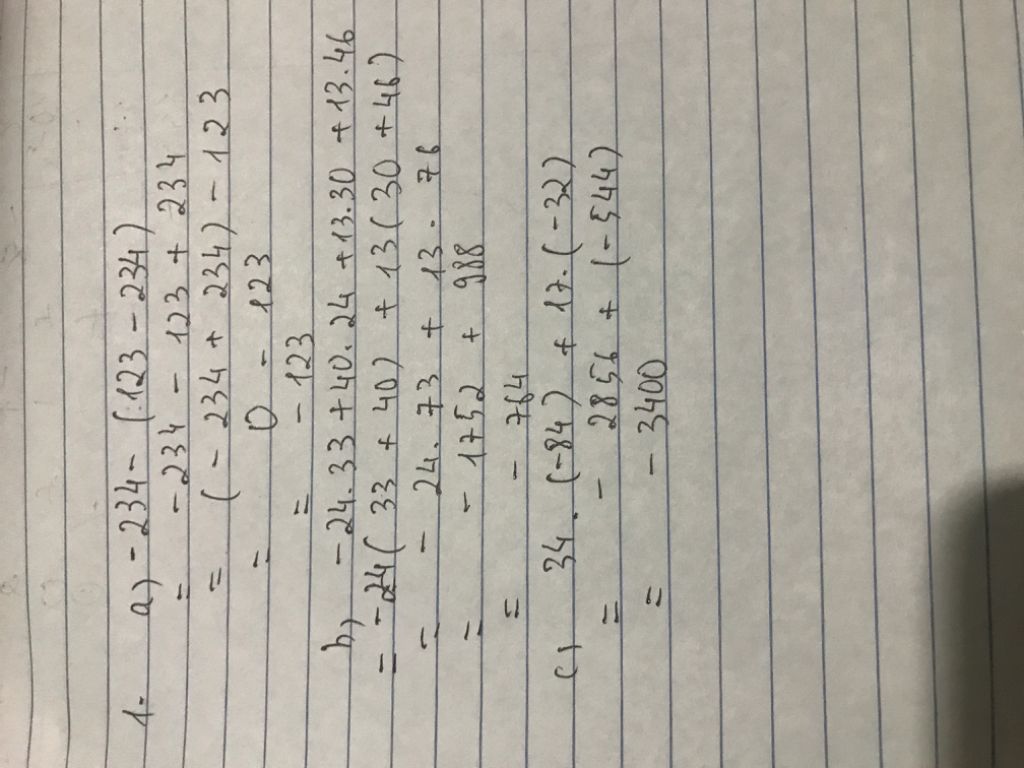 1. a) - 234 - (123 - 234)
= - 234 - 123 + 234
= (- 234 + 234) - 123
= 0 - 123
= - 123
b) - 24.33 + 40.24 + 13.30 + 13.46
= - 24( 33 + 40) + 13( 30 + 46)
= - 24.73 + 13.76
= - 1752 + 988
= - 764
c) 34.(-84) + 17.(-32)
= - 2856 + (-544)
= - 3400